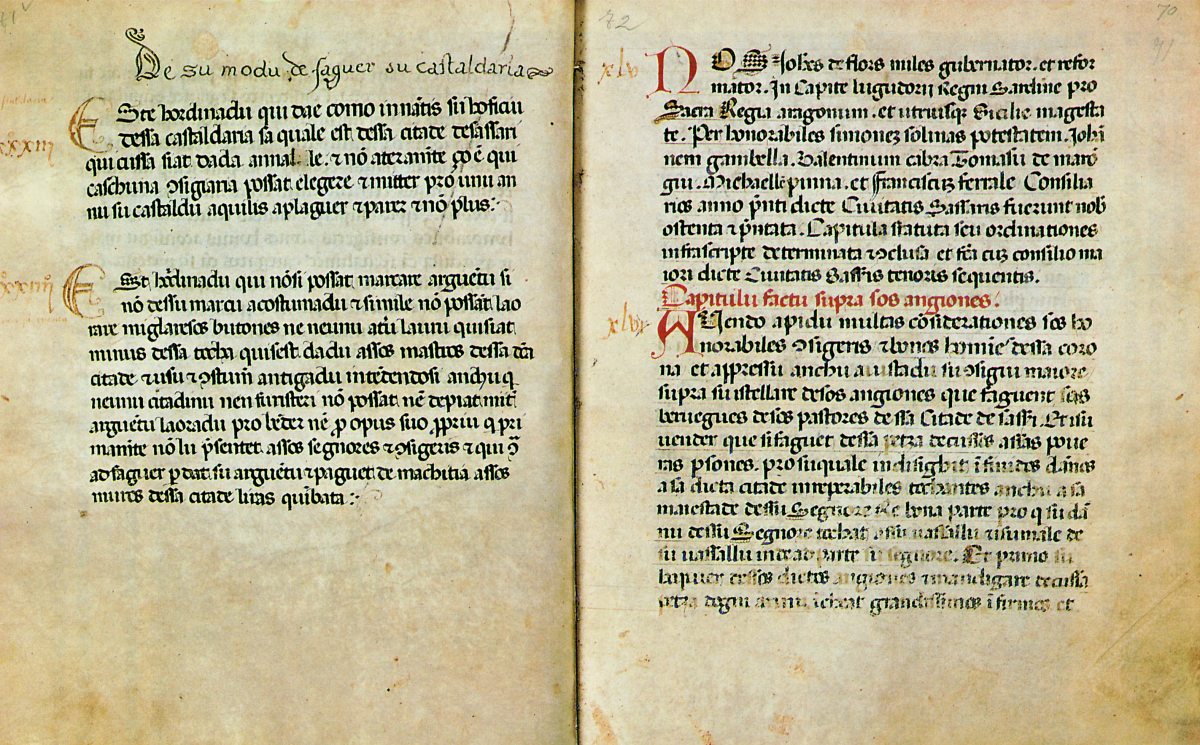 De su modu de faguer su castaldaria
Este hordinadu qui dae como innātis su officiu
dessa castaldaria sa quale est dessa citade desassari
qui cussa siat dada annal le. ⁊ nō ateramēte ço ē qui
caschuna ɔsigiaria possat elegere ⁊ mitter pro unu an
nu su castaldu aquilis aplaguer ⁊ parer ⁊ nō plus:
Est hordinadu qui nōsi possat marcare arguētu si
nō dessu marcu acostumadu ⁊ simile nō possāt lao
rare miglaresos butones ne neunu atu lauru quisiat
minus dessa tocha quisest dadu assos mastros dessa
citade ⁊ usu ⁊ ɔstumī antigadu intēdendosi anchu q̄
neunu citadinu nen furisteri nō possat nē depiat
arguētu laoradu pro bēder nē p̄ opus suo ꝓpriu q̄ pri
manite nō lu p̄sentet assos segnores ⁊ ɔsigeris ⁊ qui
adfaguer p̄dat su arguētu ⁊ paguet de machitia assos
muros dessa citade liras quībata:
xlv
NOS Iohēs de flors miles gubernator. et refor
mator. In Capite lugudorii Regni Sardinie pro
Sacra Regia aragonum. et utriusque Sicilie magesta
te. Per honorabiles simonez solinas potestatem. Johā
nem gambella. Valentinum cabra Tomasu de maro
giu. Michaellē pinna. et Franciscū ferrale Consilia
rios anno p̄nti dicte Civitatis Sassaris fuerunt nob̄
ostenta ⁊ p̄ntata. Capitula statuta seu ordinationes
infrascripte determinata ⁊ ɔclusa et fc̄a cuȝ consilio ma
iori dicte Civitatis Sassis tenoris sequentis.
Capitulu factu supra sos angiones.
xlvi
AUendo apidu multas cōsiderationes sos ho
norabiles ɔsigeris ⁊ bonos homīes dessa coro
na et appressu anchu aiustadu su ɔsigiu maiore
supra su istellare desos angiones que faguent sos
beruegues desos pastores dessa Citade de sassi. Et su
uender que si faguet dessa petza decusses assas poue
ras p̄sones. pro su quale indi
a sa dicta citade irreperabiles tochantes anchu a sa
maiestade dessu Segnore Re bona parte pro q̄ su dā
nu dessu Segnore tochat assu uassallu ⁊ su male de
su uassallu inde ad parte su segnore. Et primo su
dessos dictos angiones ⁊ mandigare decussa
petza grandissimos īfirmos et